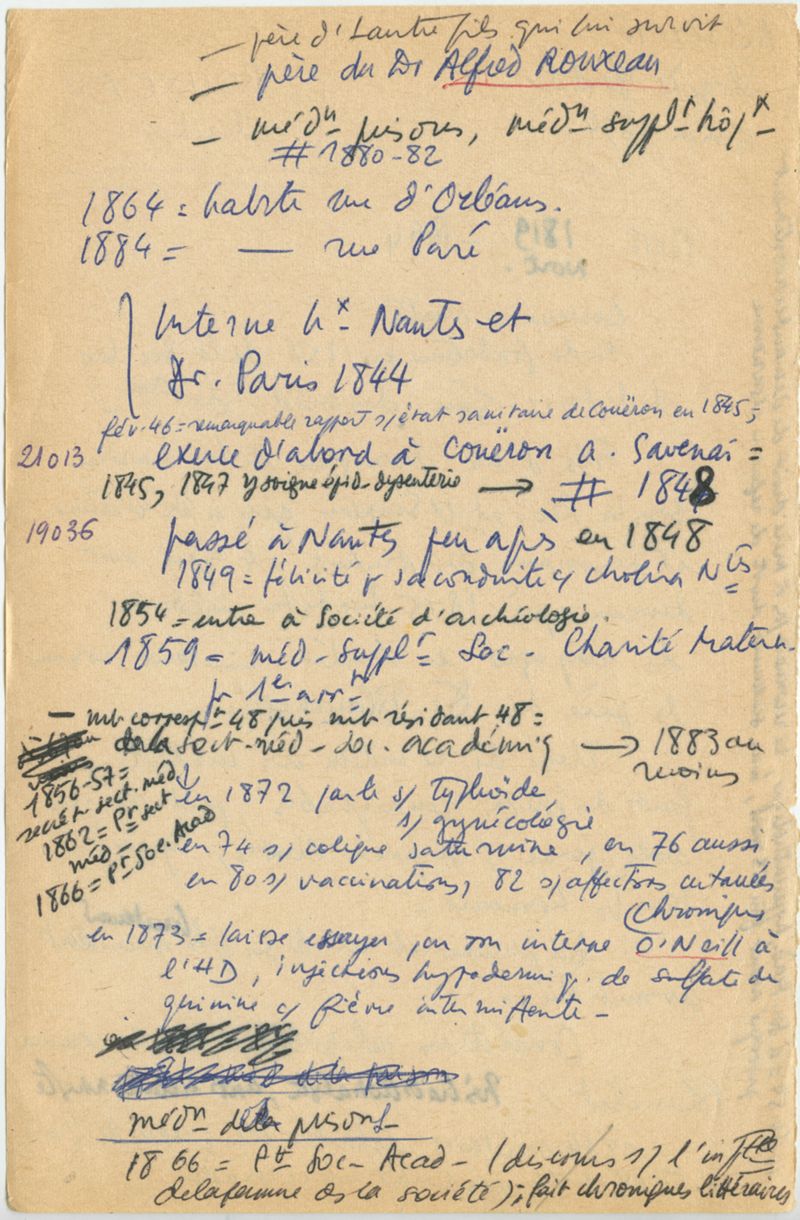 — père d'1 autre fils qui lui survit
— père du Dr Alfred Rouxeau
— médn prisons, médn supplt hôpx
# 1880-82
1864 = habite rue d'Orléans.
1884 = — rue Paré
Interne hx Nantes et
Dr. Paris 1844
fév. 46 = remarquable rapport s/ état sanitaire de Couëron en 1845;
21013 exerce d'abord à Couëron a. Savenai =
1845, 1847 y soigne épid. dysenterie → # 1848
19036 passé à Nantes peu après en 1848
1849 = félicité pr sa conduite c/ choléra Ntes
1854 = entre à Société d'archéologie.
1859 = méd. supplt Soc. Charité Matern.
pr 1er arrt
— mb correspt 48 puis mb résidant 48 =
de la sect. méd. Soc. académiq → 1883 au
moins
1856-57 =
secrét. sect. méd.
1862 = Pr sect
méd.
1866 = Pt Soc. Acad
en 1872 parle s/ typhoïde
s/ gynécologie
en 74 s/ colique saturnine, en 76 aussi
en 80 s/ vaccinations, 82 s/ affections cutanées
(chroniques
en 1873 = laisse essayer, par son interne O'Neill à
l'HD, injections hypodermiq. de sulfate de
quinine c/ fièvre intermittente —
de la prison
médn de la prisons
1866 = Pt Soc. Acad — (discours s/ l'
de la femme ds la société); fait chroniques littéraires
1819